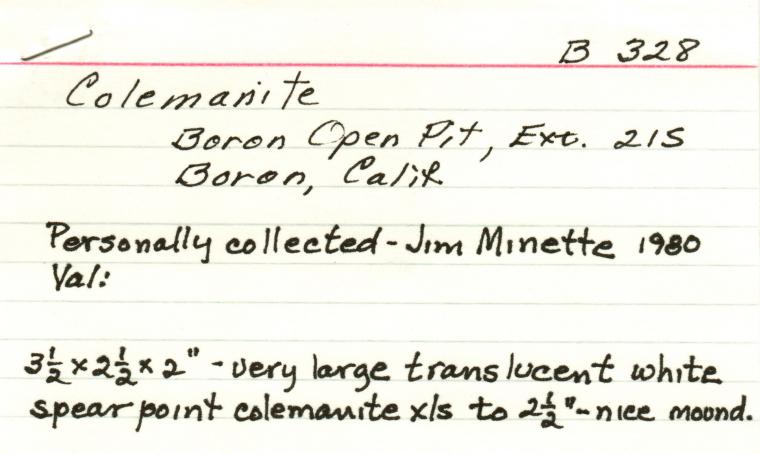 B 328
Colemanite
Boron Open Pit, Ext. 21S
Boron, Calif
Personally collected - Jim Minette 1980
Val:
3½ x 2½ x 2" - very large translucent white
spear point colemanite xls to 2½" - nice mound.